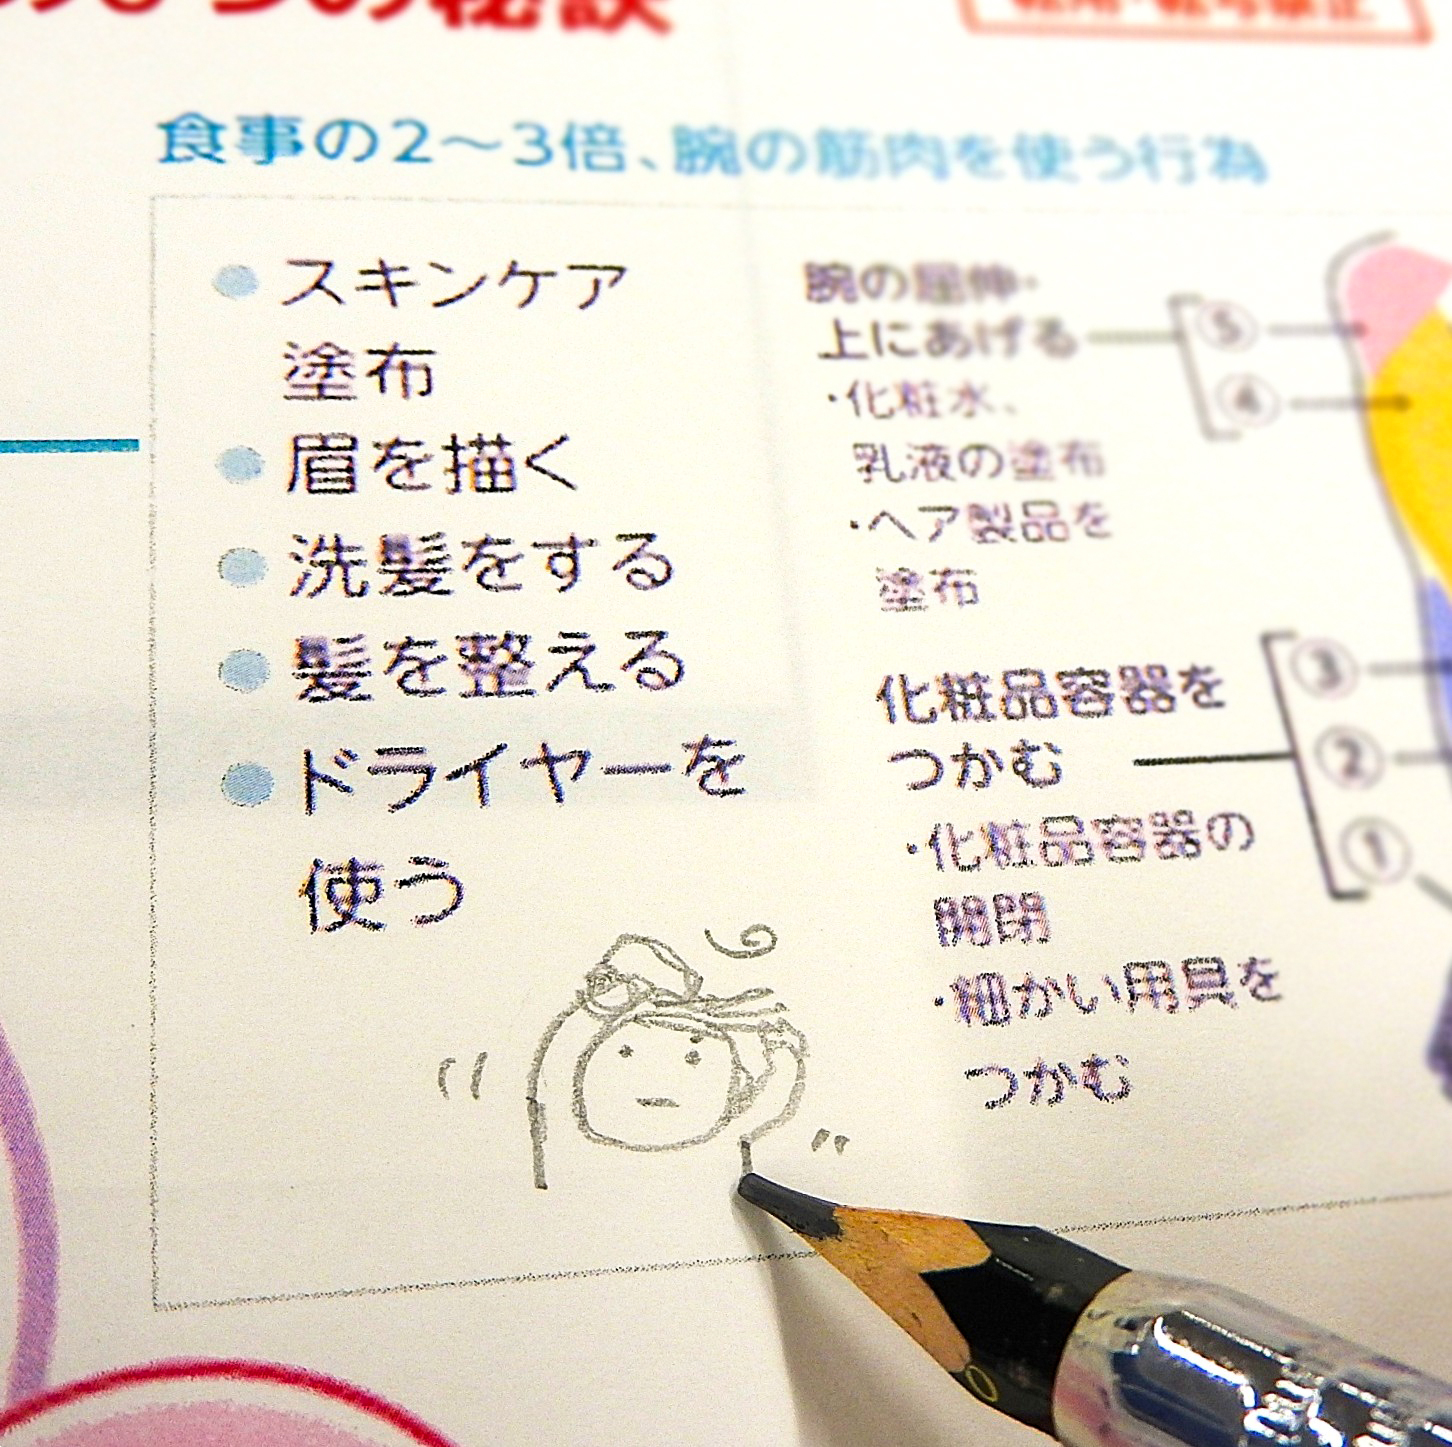 の秘訣
食事の2～3倍、腕の筋肉を使う行為
●スキンケア
塗布
●眉を描く
●洗髪をする
●髪を整える
●ドライヤーを
使う
腕の屈伸・
上にあげる
・化粧水、
乳液の塗布
・ヘア製品を
塗布
⑤
④
化粧品容器を
つかむ
・化粧品容器の
開閉
・細かい用具を
つかむ
③
②
①